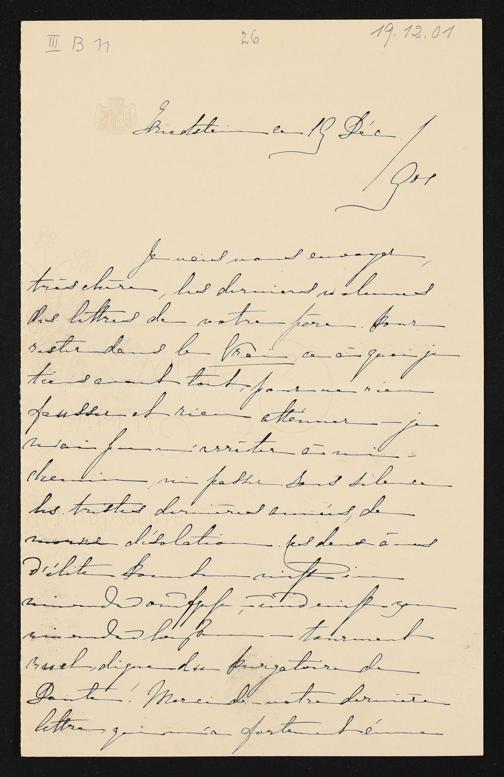 III B 11 26 19.12.01
Friedstein ce 19 Déc.
/901
Je viens vous envoyer,
très chère, les derniers volumes
des lettres de votre père. Pour
rester dans le Vrai, ce à quoi je
tiens avant tout, pour ne rien
fausser et rien atténuer – je
n'ai pu m'arrêter à mi-
chemin, ni passer sous silence
les tristes dernières années, de
morne désolation. Ces deux âmes
d'élite
– tourment
cruel, digne du Purgatoire de
Dante! Merci de votre dernière
lettre qui m'a fortement émue